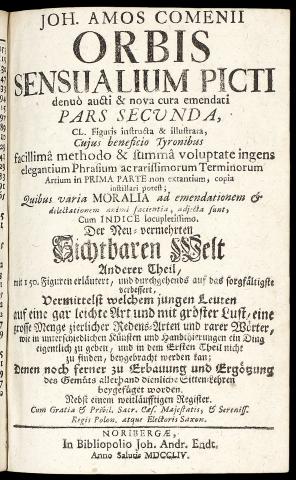 JOH. AMOS COMENII
ORBIS
SENSUALIUM PICTI
denuò aucti & nova cura emendati
PARS SECVNDA,
CL. Figuris instructa & illustrata,
Cujus beneficio Tyronibus
facillimâ methodo & summâ voluptate ingens
elegantium Phrasium ac rarissimorum Terminorum
Artium in PRIMA PARTE non extantium, copia
instillari potest;
Quibus varia MORALIA ad emendationem &
delectationem animi facientia, adjecta sunt,
Cum INDICE locupletissimo.
Der Neu-vermehrten
Sichtbaren Welt
Anderer Theil,
mit 150. Figuren erläutert, und durchgehends auf das sorgfältigste
verbessert,
Vermittelst welchem jungen Leuten
auf eine gar leichte Art und mit gröster Lust, eine
grosse Menge zierlicher Redens-Arten und rarer Wörter,
wie in unterschiedlichen Künsten und Handthierungen ein Ding
eigentlich zu geben, und in dem Ersten Theil nicht
zu finden, beygebracht werden kan;
Denen noch ferner zu Erbauung und Ergötzung
des Gemüts allerhand dienliche Sitten-Lehren
beygefüget worden.
Nebst einem weitläufftigen Register.
Cum Gratia & Privil. Sacr. Cæs. Majestatis, & Sereniss.
Regis Polon. atque Electoris Saxon.
NORIBERGÆ,
In Bibliopolio Joh. Andr. Endt.
Anno Salutis MDCCLIV.